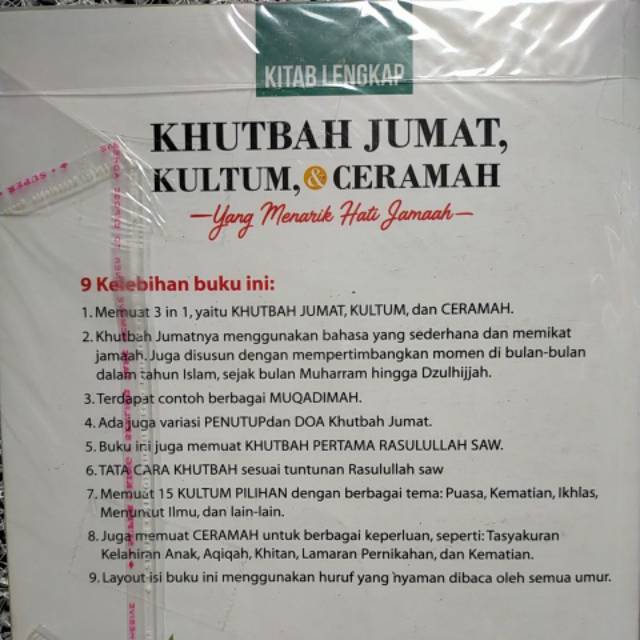 KITAB LENGKAP
KHUTBAH JUMAT,
KULTUM, & CERAMAH
—Yang Menarik Hati Jamaah—
9 Kelebihan buku ini:
1. Memuat 3 in 1, yaitu KHUTBAH JUMAT, KULTUM, dan CERAMAH.
2. Khutbah Jumatnya menggunakan bahasa yang sederhana dan memikat
jamaah. Juga disusun dengan mempertimbangkan momen di bulan-bulan
dalam tahun Islam, sejak bulan Muharram hingga Dzulhijjah.
3. Terdapat contoh berbagai MUQADIMAH.
4. Ada juga variasi PENUTUPdan DOA Khutbah Jumat.
5. Buku ini juga memuat KHUTBAH PERTAMA RASULULLAH SAW.
6. TATA CARA KHUTBAH sesuai tuntunan Rasulullah saw
7. Memuat 15 KULTUM PILIHAN dengan berbagai tema: Puasa, Kematian, Ikhlas,
Menuntut Ilmu, dan lain-lain.
8. Juga memuat CERAMAH untuk berbagai keperluan, seperti: Tasyakuran
Kelahiran Anak, Aqiqah, Khitan, Lamaran Pernikahan, dan Kematian.
9. Layout isi buku ini menggunakan huruf yang nyaman dibaca oleh semua umur.